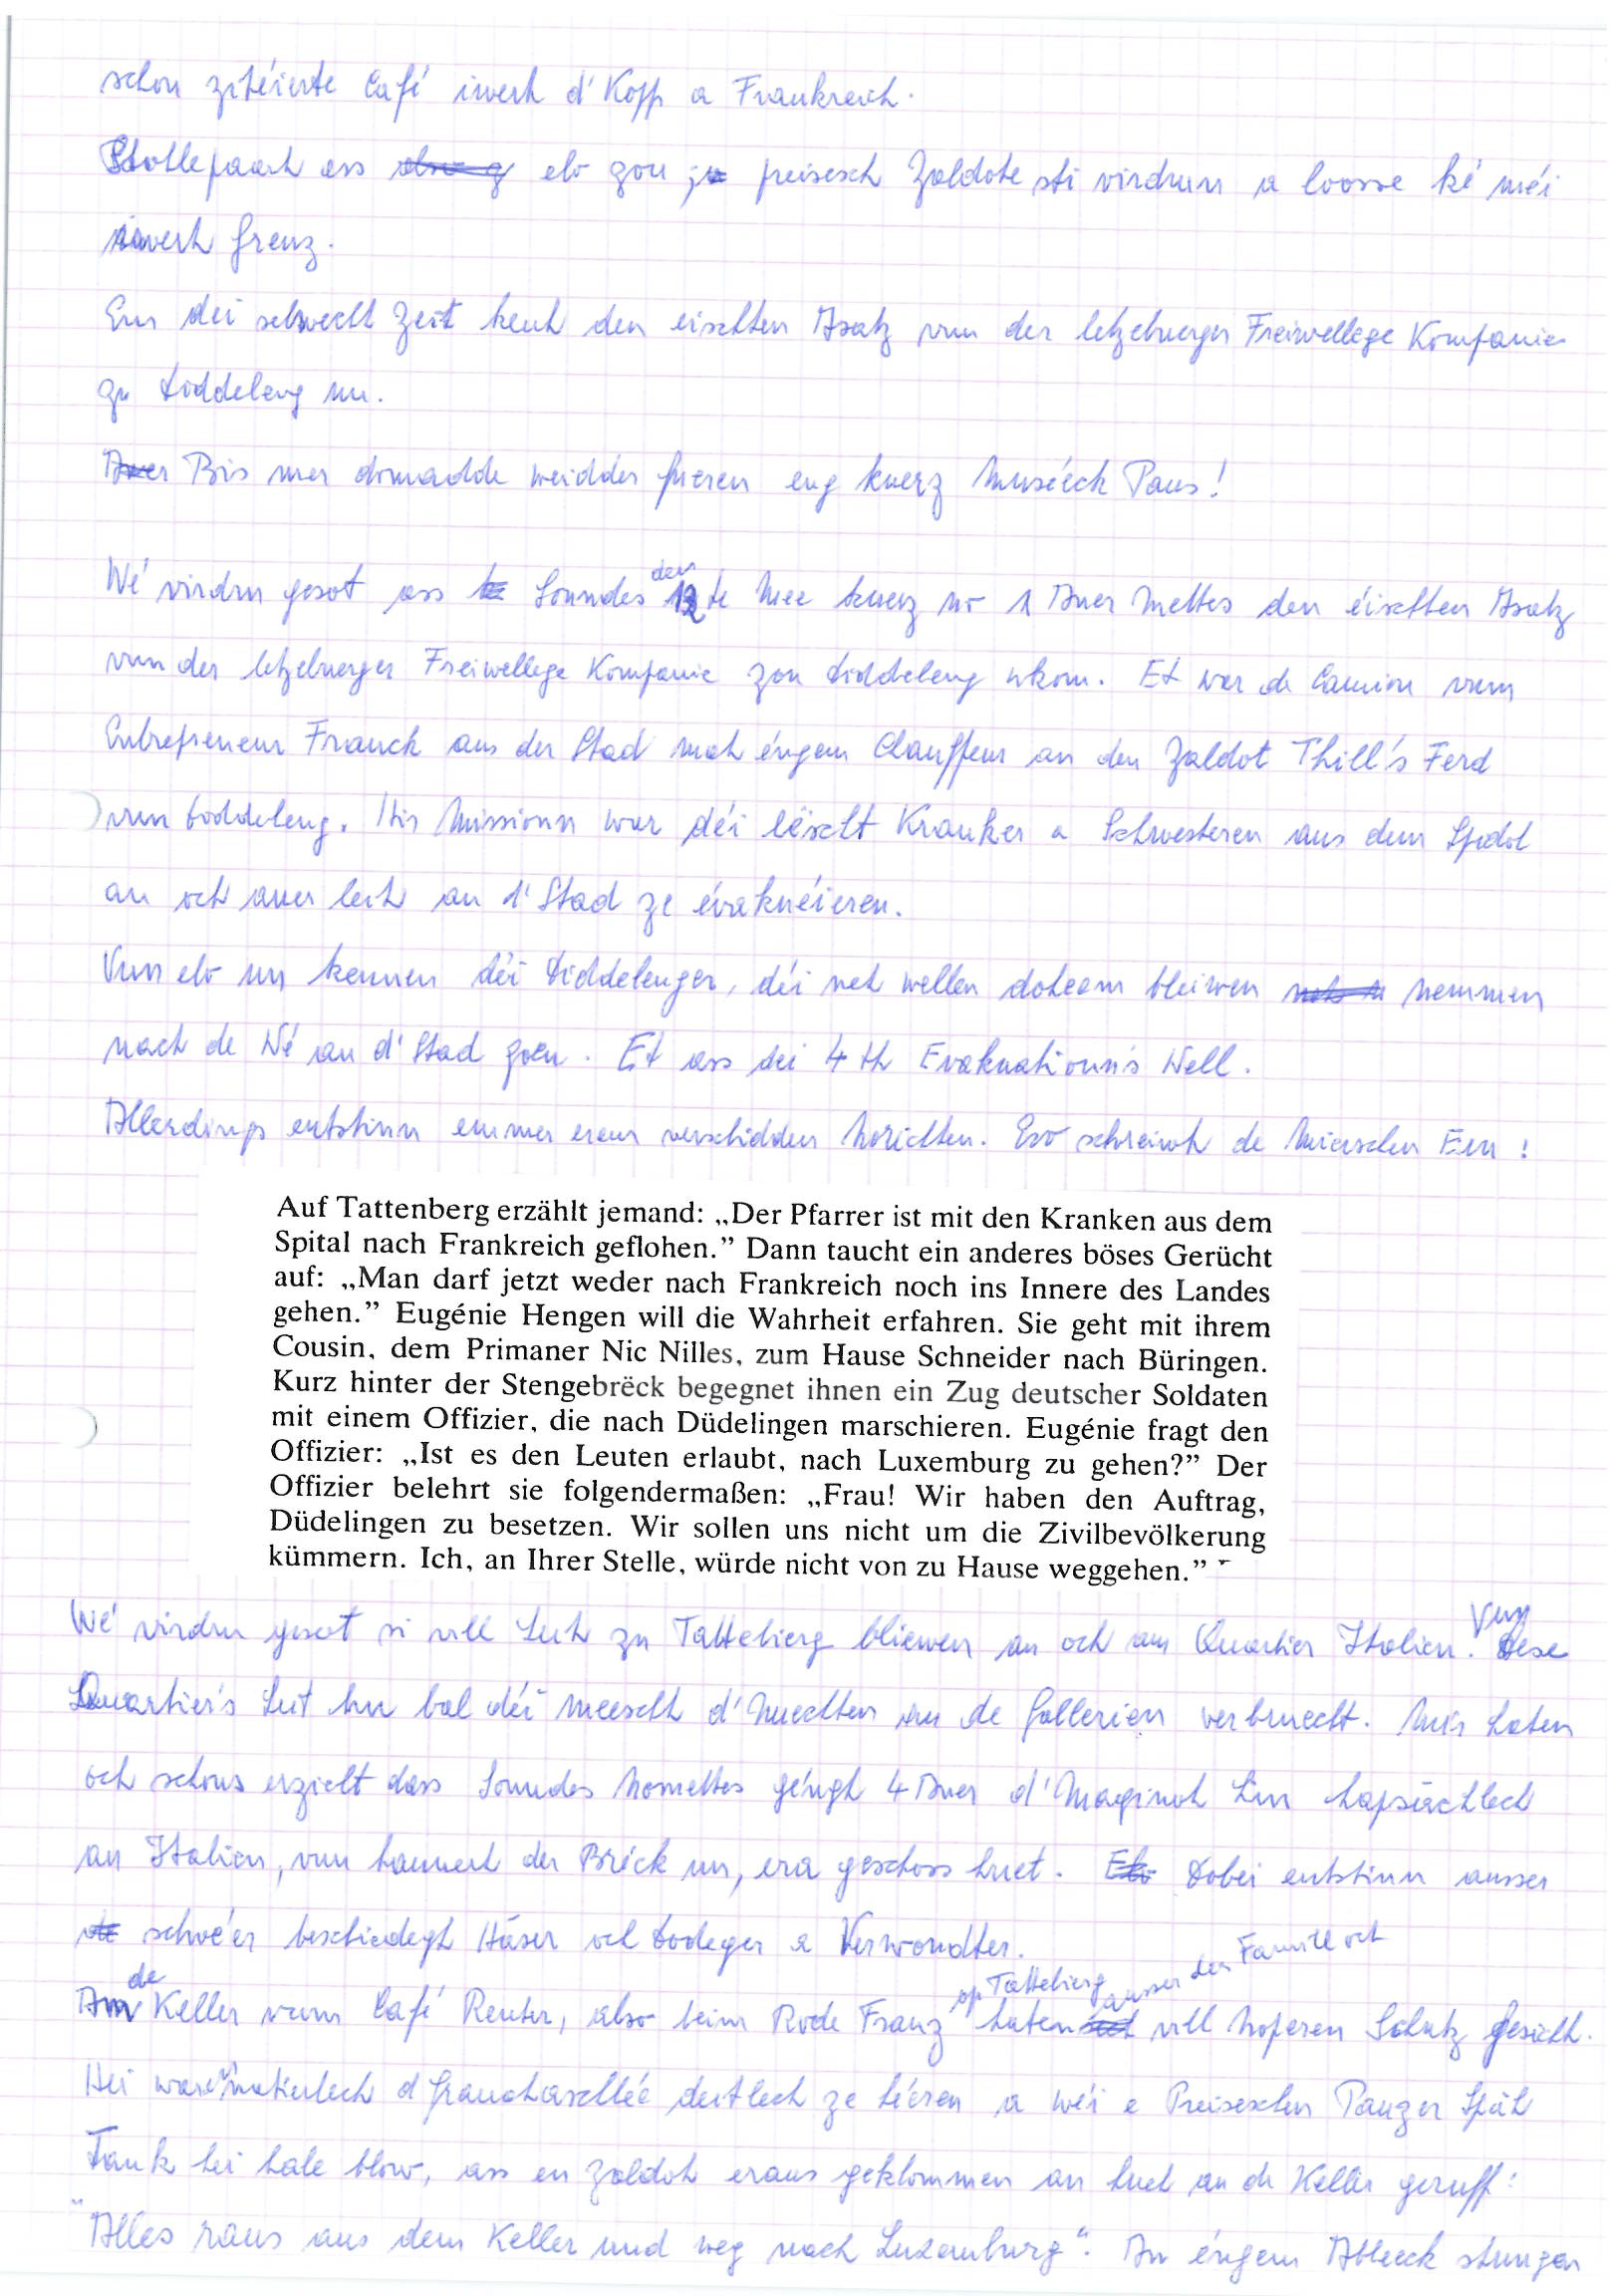 schon zitéierte Café iwerh d'Kopp a Frankreich.
Stollepaart ass elo gou preisesch Zaldote sti virdrun a loosse ké méi
iwerh Grenz.
Em déi selwecht Zeit kent den eischten Asatz vun der letzebuerger Freiwellege Kompanie
zu Diddeleng un.
Bis mer domadde weidder fueren eng kuerz Muséeck Paus!
Wé virdru gesot ass Sonndes den 12te Mee kuerz no 1 Auer Mettes den éischten Asatz
vun der letzebuerger Freiwellege Kompanie zou Diddeleng ukom. Et war de Camion vum
Entrepreneur Franck aus der Stad mat éngem Chauffeur an den Zaldot Thill's Ferd
vun Boddeleng. Hir Missioun war déi lëscht Kranker a Schwesteren aus dem Spidol
an och aner leit an d'Stad ze évakuéieren.
Vun elo un kennen déi Diddelenger, déi net wellen doheem bleiwen nemmen
nach de Wé an d'Stad goen. Et ass déi 4 th Evakuatioun's Well.
Allerdings entstinn emmer erem verschidden Norichten. Eso schreiwt de Mierschen Em!
Auf Tattenberg erzählt jemand: „Der Pfarrer ist mit den Kranken aus dem
Spital nach Frankreich geflohen.” Dann taucht ein anderes böses Gerücht
auf: „Man darf jetzt weder nach Frankreich noch ins Innere des Landes
gehen.” Eugénie Hengen will die Wahrheit erfahren. Sie geht mit ihrem
Cousin, dem Primaner Nic Nilles, zum Hause Schneider nach Büringen.
Kurz hinter der Stengebrëck begegnet ihnen ein Zug deutscher Soldaten
mit einem Offizier, die nach Düdelingen marschieren. Eugénie fragt den
Offizier: „Ist es den Leuten erlaubt, nach Luxemburg zu gehen?” Der
Offizier belehrt sie folgendermaßen: „Frau! Wir haben den Auftrag,
Düdelingen zu besetzen. Wir sollen uns nicht um die Zivilbevölkerung
kümmern. Ich, an Ihrer Stelle, würde nicht von zu Hause weggehen.”
Wé virdru gesot si vill Leit zu Tattebierg bliewen an och am Quartier Italien. Vun dese
Quartier's Leit hu bal déi meescht d'Nuechten an de Gallerien verbruecht. Mir haten
och schons erzielt dass Sonndes Nomettes géngt 4 Auer d'Maginot Linn hapsächlech
an Italien, vun hannert der Bréck un, era geschoss huet. Dobei entstinn ausser
schwéer beschiedegt Haiser och Dodeger a Verwondter.
An de Keller vum Café Reuter, also beim Rode Franz op Tattebierg haten ausser der Famill och vill Noperen Schutz gesicht.
Hei ware natierlech d Granateschlée deitlech ze héieren a wéi e Preiseschen Panzer Späh
Tank hei hale blow, ass en Zaldot eraus geklommen an huet an de Keller geruff:
"Alles raus aus dem Keller und weg nach Luxemburg". An éngem Ableeck stungen